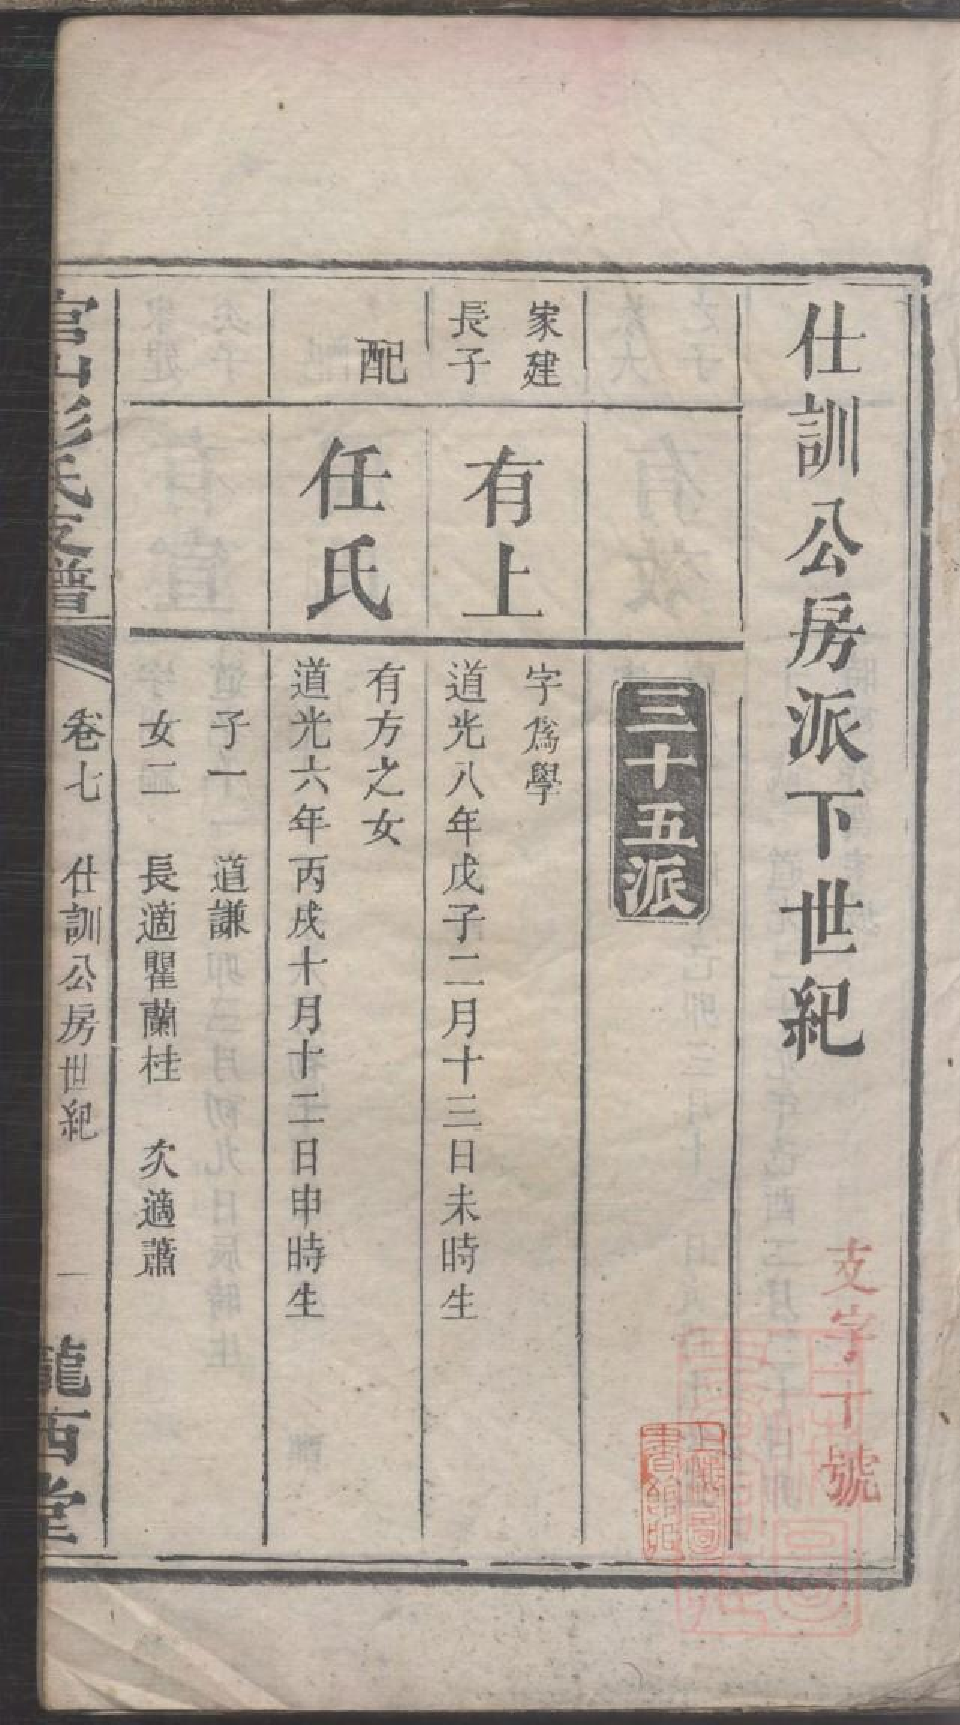 仕訓公房派下世紀
支字丁號
三十五派
家建
長子
有上
字為學
道光八年戊子二月十三日未時生
配
任氏
有方之女
道光六年丙戌十月十二日申時生
子一 道謙
女二 長適瞿蘭桂 次適蕭
官山彭氏支譜 卷七 仕訓公房世紀 一 隴西堂